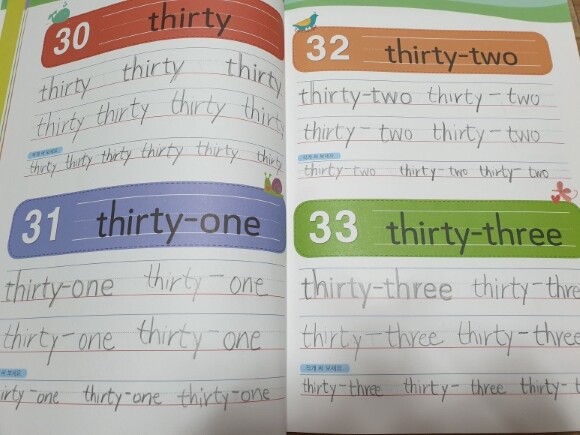 30 thirty
thirty thirty thirty
thirty thirty thirty thirty
작게 써 보세요.
thirty thirty thirty thirty thirty thirty
31 thirty-one
thirty-one thirty-one
thirty-one thirty-one
써 보세요.
irty-one thirty-one thirty-one
32 thirty-two
thirty-two thirty-two
thirty-two thirty-two
작게 써 보세요.
thirty-two thirty-two thirty-two
33 thirty-three
thirty-three thirty-thre
thirty-three thirty-three
작게 써 보세요.
thirty-three thirty-three thirty-t